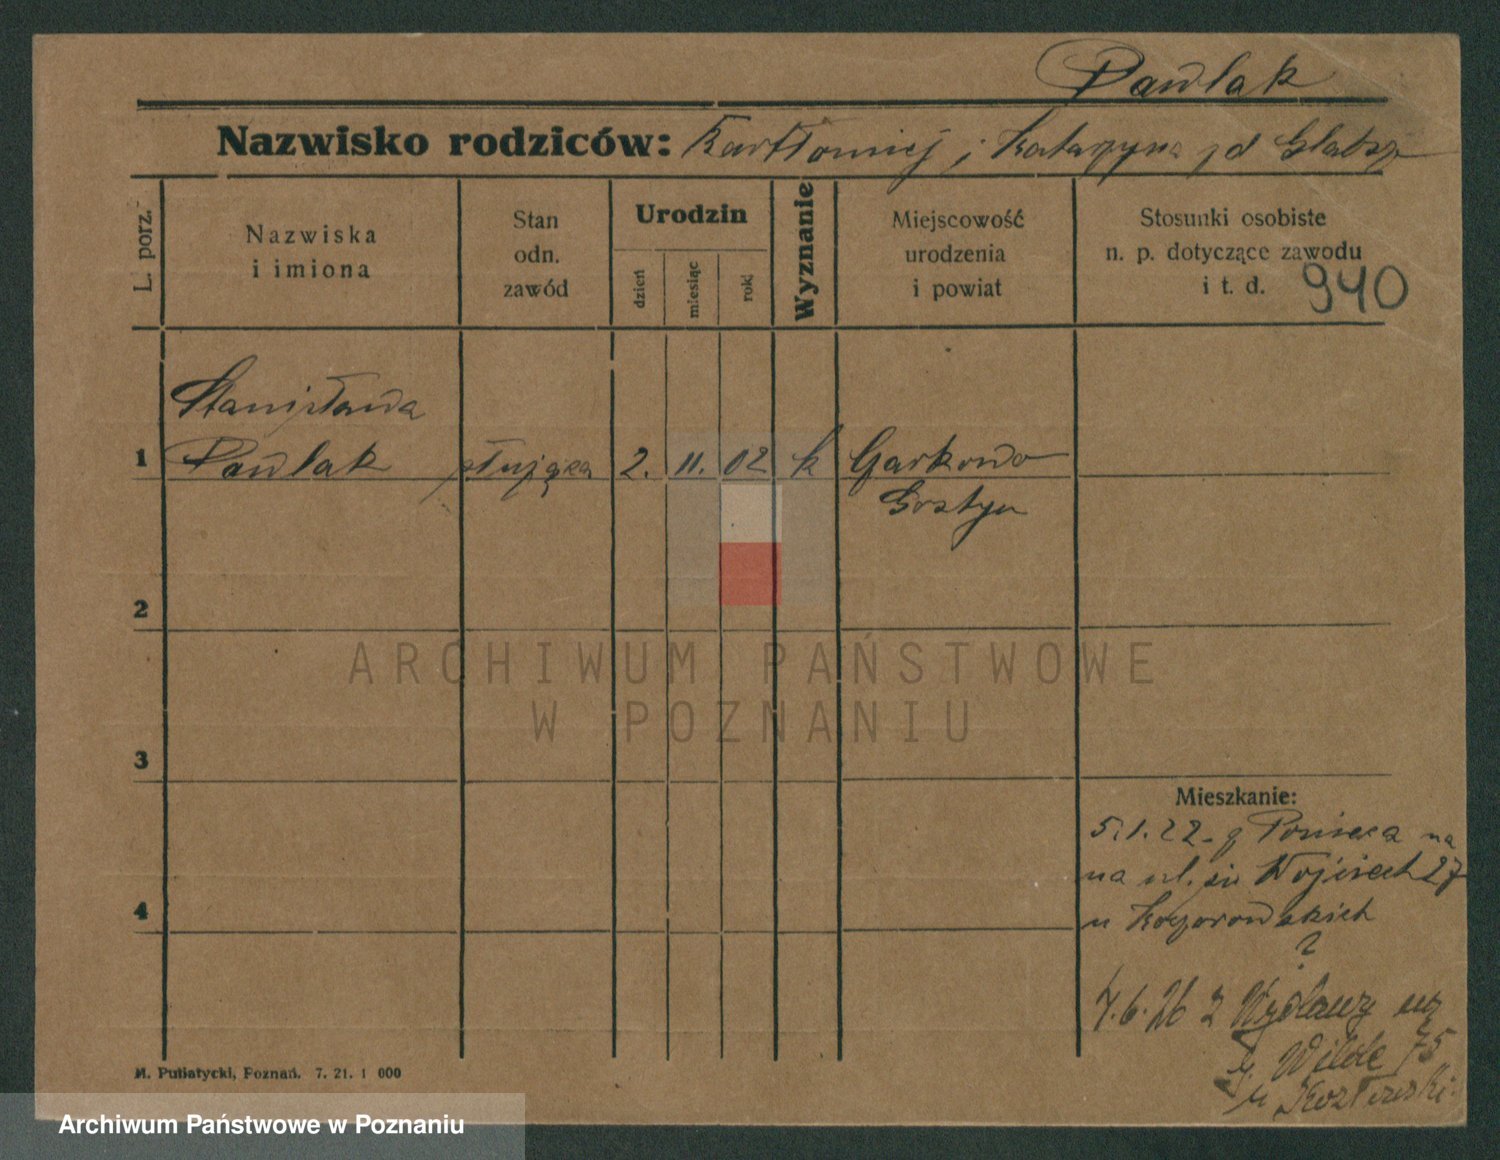 Pawlak
Nazwisko rodziców: Bartłomiej i Katarzyna zd
L. porz.
Nazwiska
i imiona
Stan
odn.
zawód
Urodzin
dzień
miesiąc
rok
Wyznanie
Miejscowość
urodzenia
i powiat
Stosunki osobiste
n. p. dotyczące zawodu
i t. d.
940
Stanisława
1 Pawlak służąca 2. 11. 02 k
Gostyn
2
ARCHIWUM PAŃSTWOWE
W POZNANIU
3
Mieszkanie:
5.1.22 z Ponieca na
na ul. św Wojciech 27
4
u
?
7.6.26 z
g. Wilde 75
u
M. Putiatycki, Poznań. 7. 21. 1 000
Archiwum Państwowe w Poznaniu